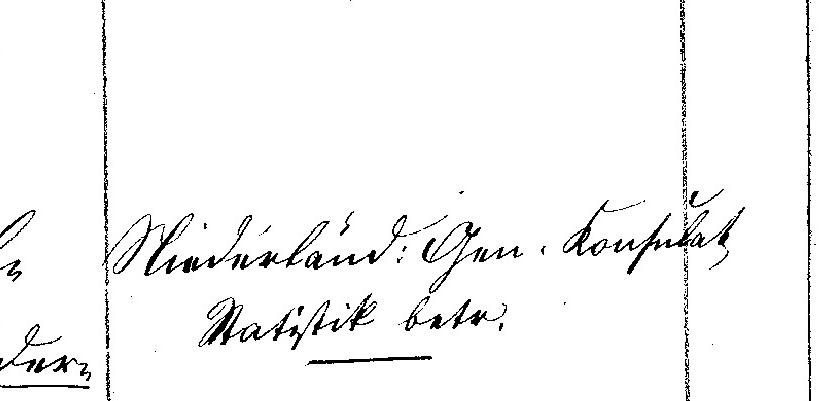 Niederländ: Gen. Konsulat
Statistik betr.
der